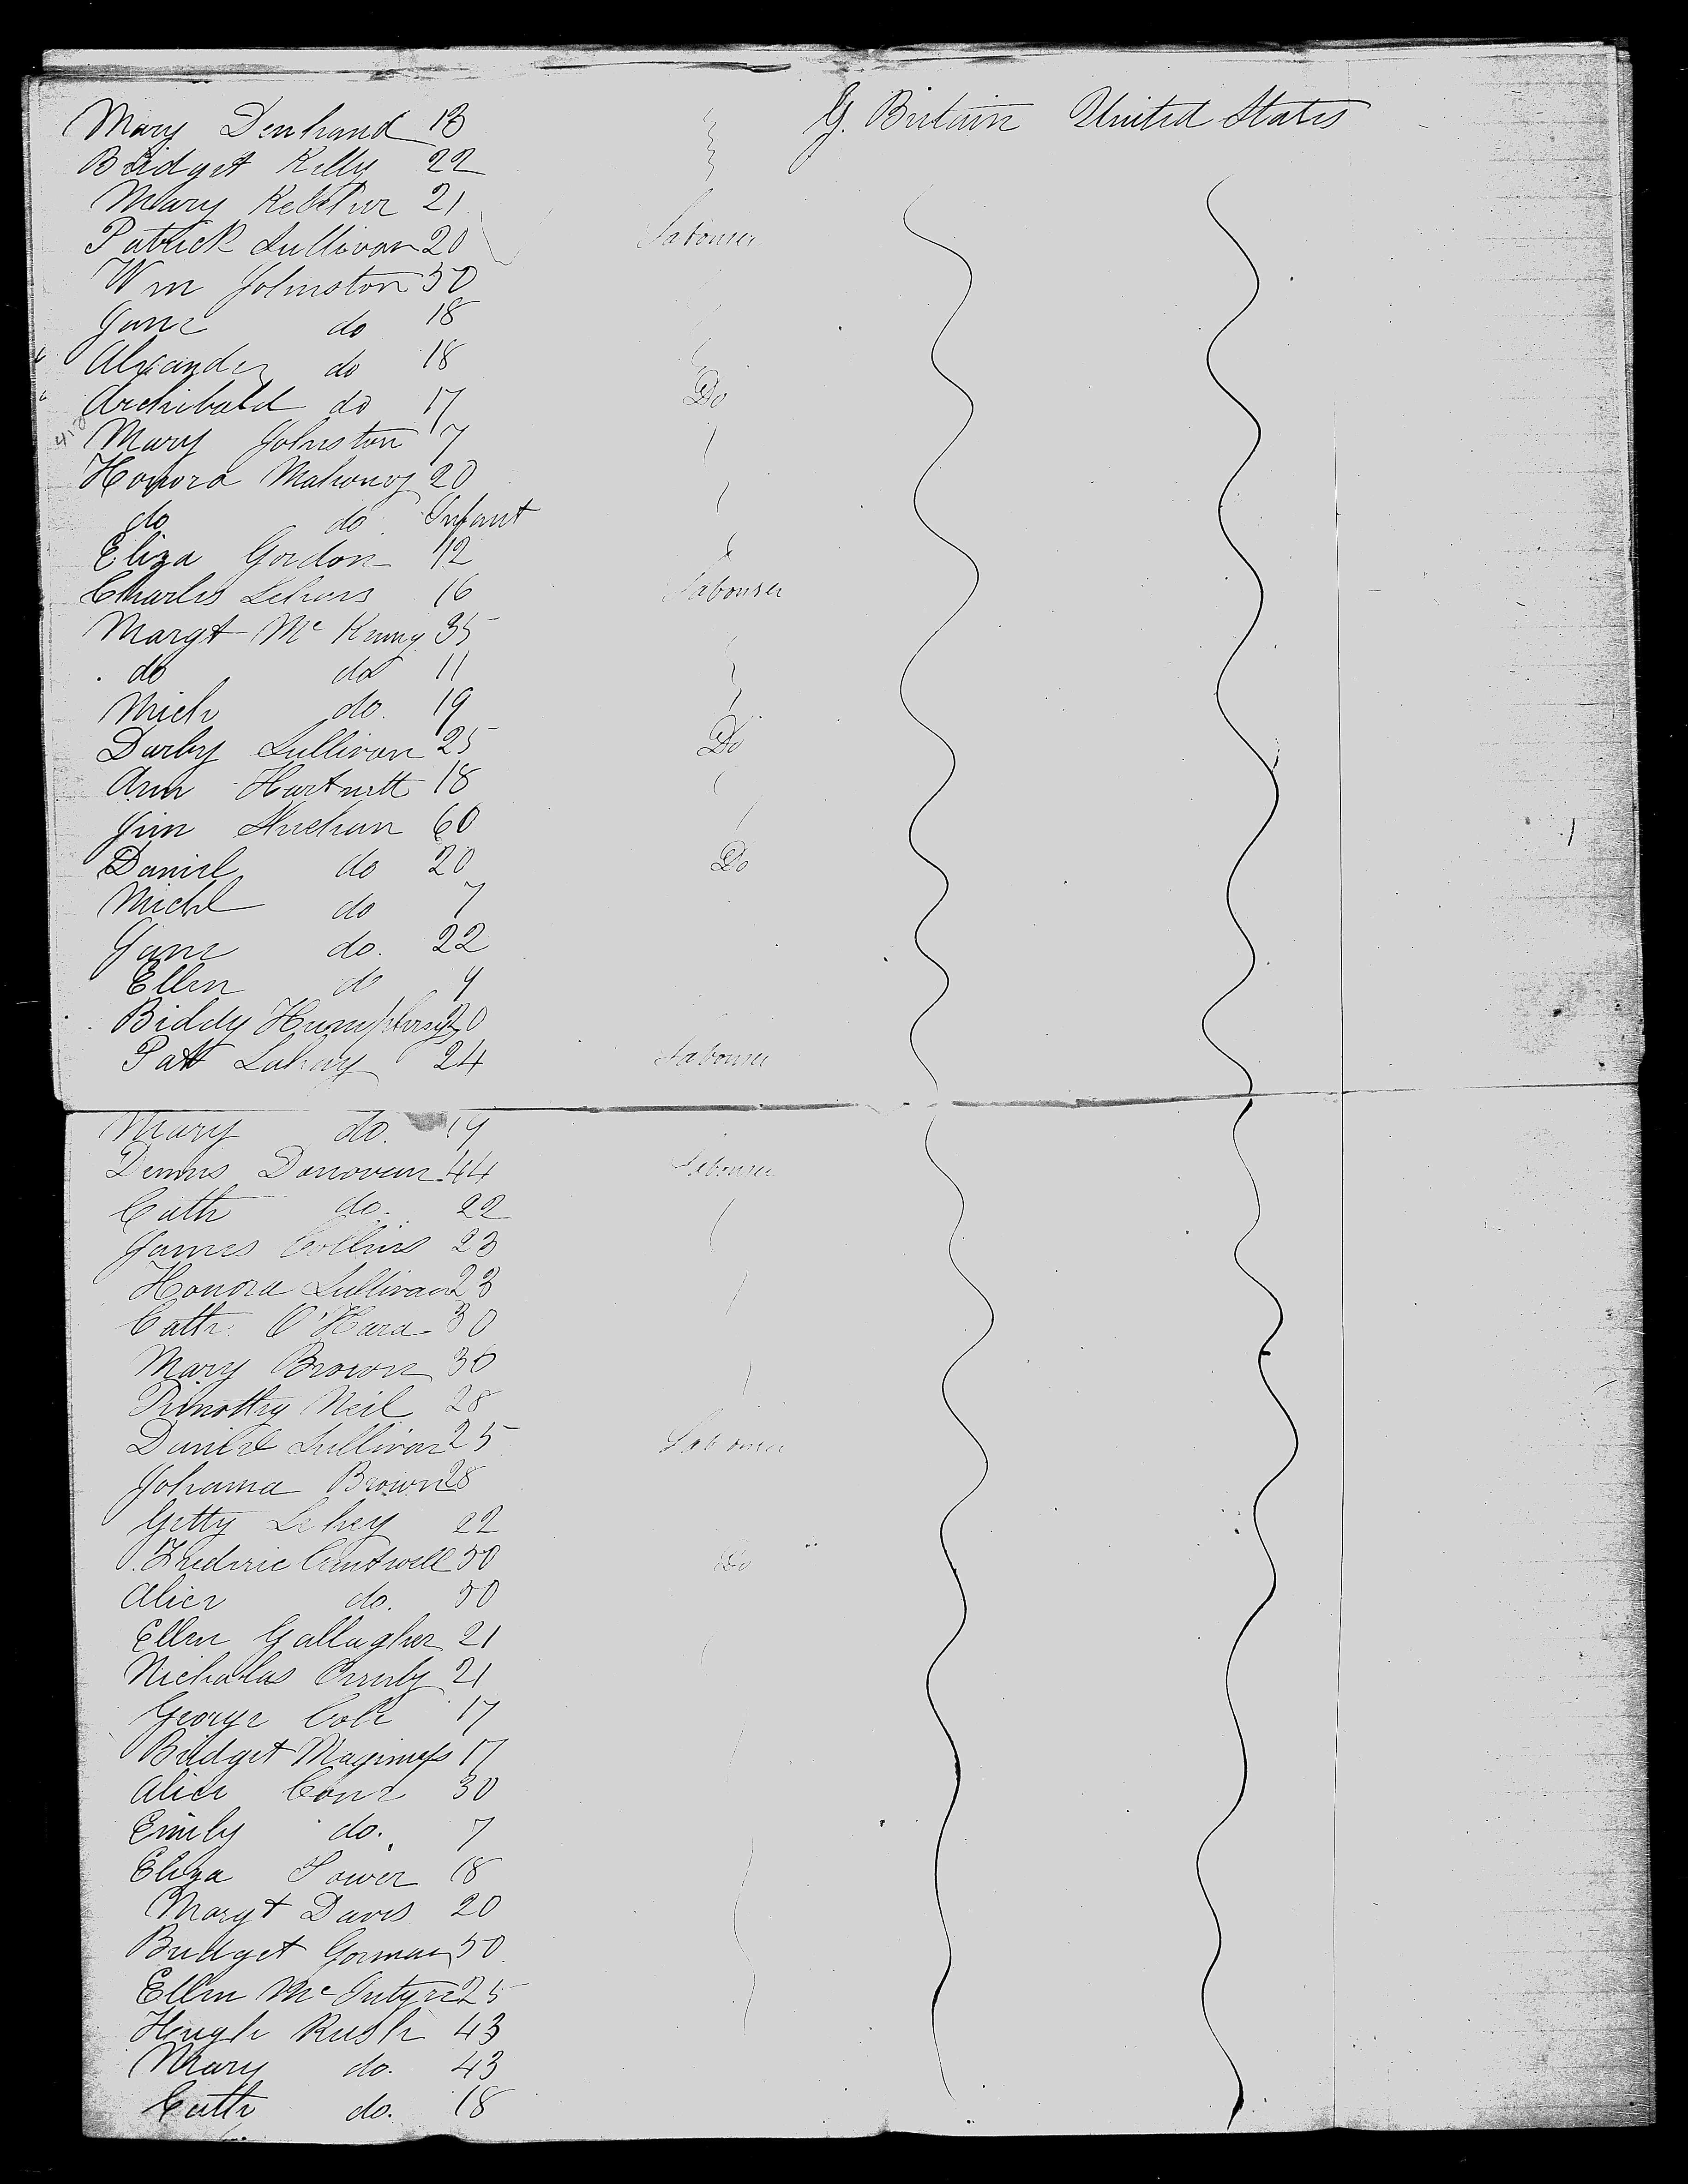 Mary Denhand 13 G. Britain United States
Bridget Kelly 22
Mary 21
Patrick Sullivan 20 Labourer
Wm Johnston 50
Jane do 18
Alexander do 18
Archibald do 17 Do
Mary Johnston 7
Honora Mahoney 20
do do Infant
Eliza Gordon 12
Charles 16 Labourer
Margt Mc Kenny 35
do do 11
Mich do. 19
Darby Sullivan 25 Do
Ann Hartnett 18
Jim 60
Daniel do 20 Do
Michl do 7
Jane do. 22
Ellen do 9
Biddy Humphreys 20
Patt Lahey 24 Labourer
Mary do. 19
Dennis Donovan 44 Labourer
Cath do. 22
James Collins 23
Honora Sullivan 23
Cath O'Hara 30
Mary Brown 30
Timothy Neil 28
Daniel Sullivan 25 Labourer
Johanna Brown 28
Getty Lehey 22
Frederic Cantwell 50 Do
Alice do. 50
Ellen Gallagher 21
Nicholas 21
George Cole 17
Bridget Maginness 17
Alice Cone 30
Emily do. 7
Eliza Power 18
Margt Davis 20
Bridget Gorman 50
Ellen Mc Intyre 25
Hough Rush 43
Mary do. 43
Cath do. 18